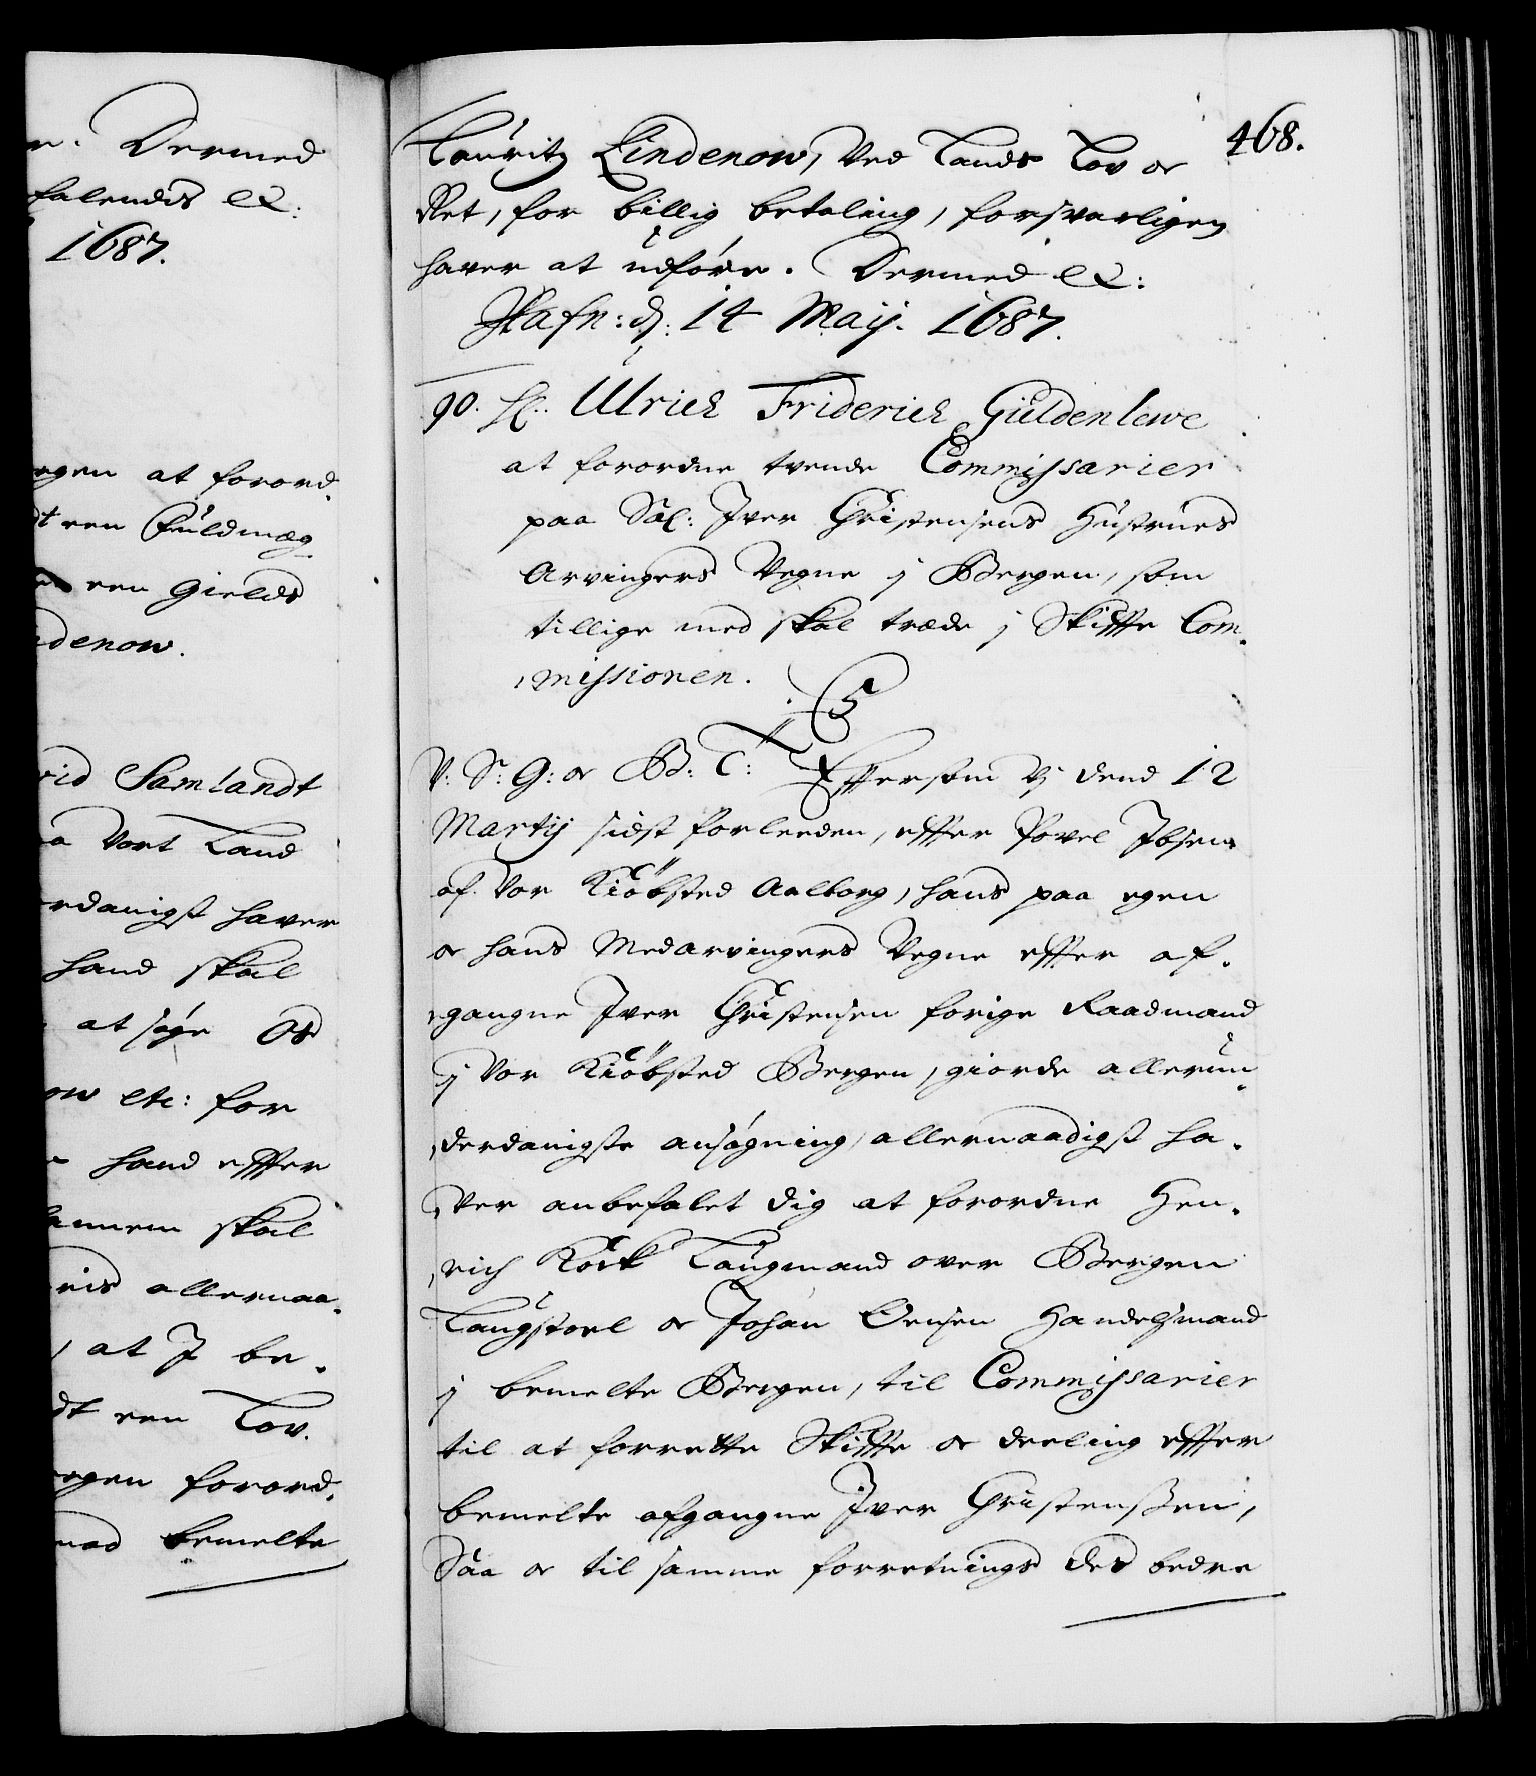 n. Dermed
falendis etc:
1687.
egen at forord-
dt een Fuldmæg-
een Gields
denow.
rid Samlandt
a Vort Land
rdanigst haver
hand skal
at søge Os
ow etc: for
hand effter
annem skal
allernaa-
at J be-
dt een Lov-
egen forord-
bemelte
468.
Lauritz Lindenow, Ved Lands Lov oc
Ret, for billig betaling, forsvarligen
haver at udføre. Dermed etc:
Hafn: d: 14 Maij. 1687.
90. H: Ulrich Friderich Güldenlewe
at forordne tvende Commissarier
paa Sal: Iver Christensens Hustrues
Arvingers Vegne j Bergen, som
tillige med skal træde j Skiffte Com-
missionen.
C5
V: S: G: oc B: T: Effter som Vj dend 12
Martij sidst forleeden, effter Povel Ibsen
af Vor Kiöbsted Aalborg, hans paa egen
oc hans Medarvingers Vegne effter af-
gangne Iver Christensen forige Raadmand
j Vor Kiöbsted Bergen, giorde allerun-
derdanigste ansøgning, allernaadigst ha-
ver anbefalet dig at forordne Hen-
rich Kock Laugmand over Bergen
Laugstoel oc Johan Handelsmand
j bemelte Bergen, til Commissarier
til at forrette Skiffte oc deeling effter
bemelte afgangne Iver Christenssen,
Saa oc til samme forretnings des bedre